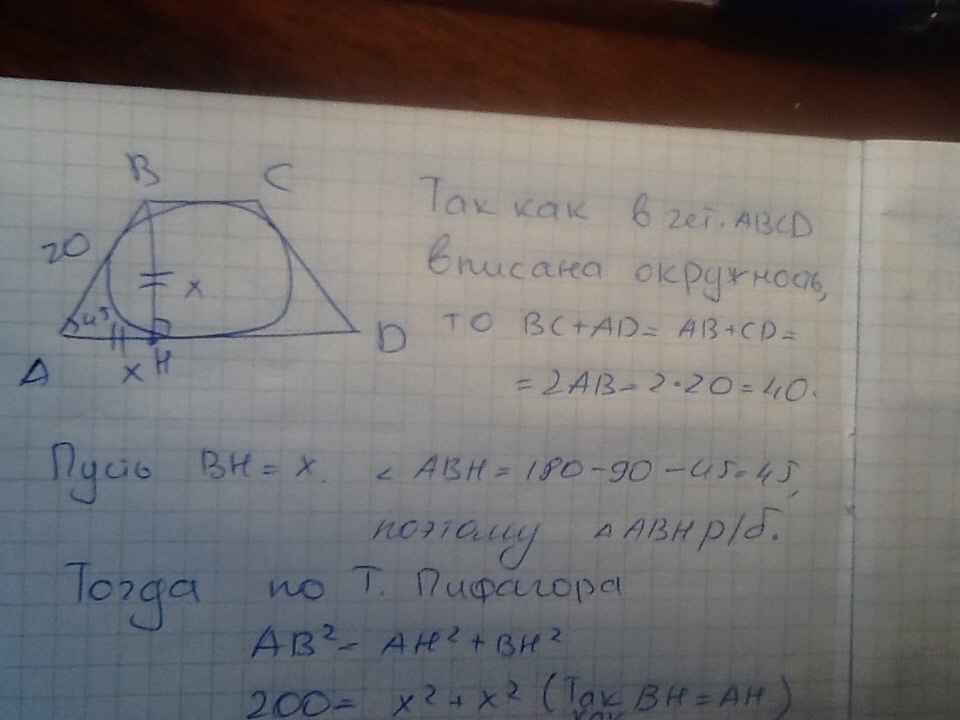 B C
20
45
x
A x H D
Так как в чет. ABCD
вписана окружность,
то BC+AD= AB+CD=
=2AB=2·20=40.
Пусть BH = x. ∠ ABH = 180-90-45=45,
поэтому △ABH р/б.
Тогда по Т. Пифагора
AB²= AH²+BH²
200= x²+x² (Так BH=AH)
как